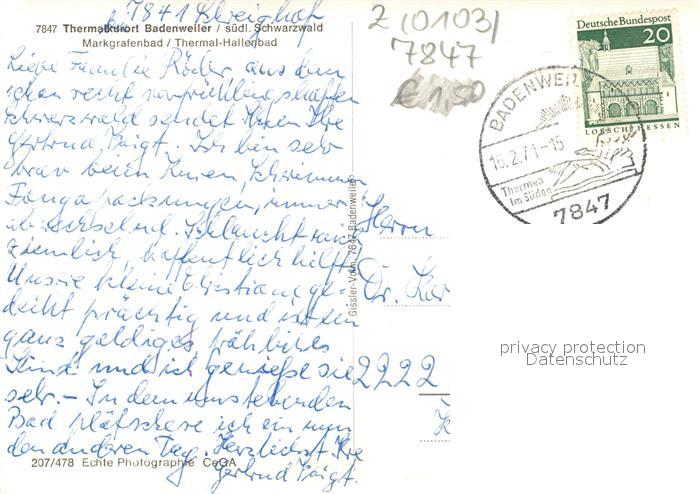 7841 Schweighof
7847 Thermalkurort Badenweiler / südl. Schwarzwald
Markgrafenbad / Thermal-Hallenbad
Liebe Familie Röder aus dem
schon recht vorfrühlingshaften
Schwarzwald sendet Ihnen Ihre
Gertrud Voigt. Ich bin sehr
brav beim Kuren, Schwimmen
Fangopackungen, immer
abwechselnd. Schlaucht zwar
ziemlich, hoffentlich hilft's
Unsere kleine Christiane ge-
deiht prächtig und ist ein
ganz goldiges fröhliches
Kind und ich genieße sie
sehr. – In dem umstehenden
Bad plätschere ich ein um
den anderen Tag. Herzlichst Ihre
Gertrud Voigt.
207/478 Echte Photographie CeGA
Gissler-Volm, 7847 Badenweiler
Z (0103)
7847
€ 1,50
Deutsche Bundespost
20
LORSCH/HESSEN
BADENWEI
16.2.71-15
Thermen
im Süden
7847
Herrn
Dr. Kar
2222
privacy protection
Datenschutz